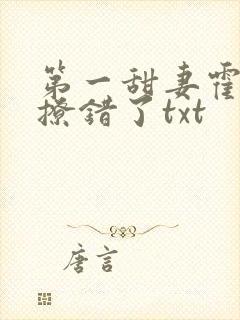 第一甜妻霍
撩错了txt
唐言